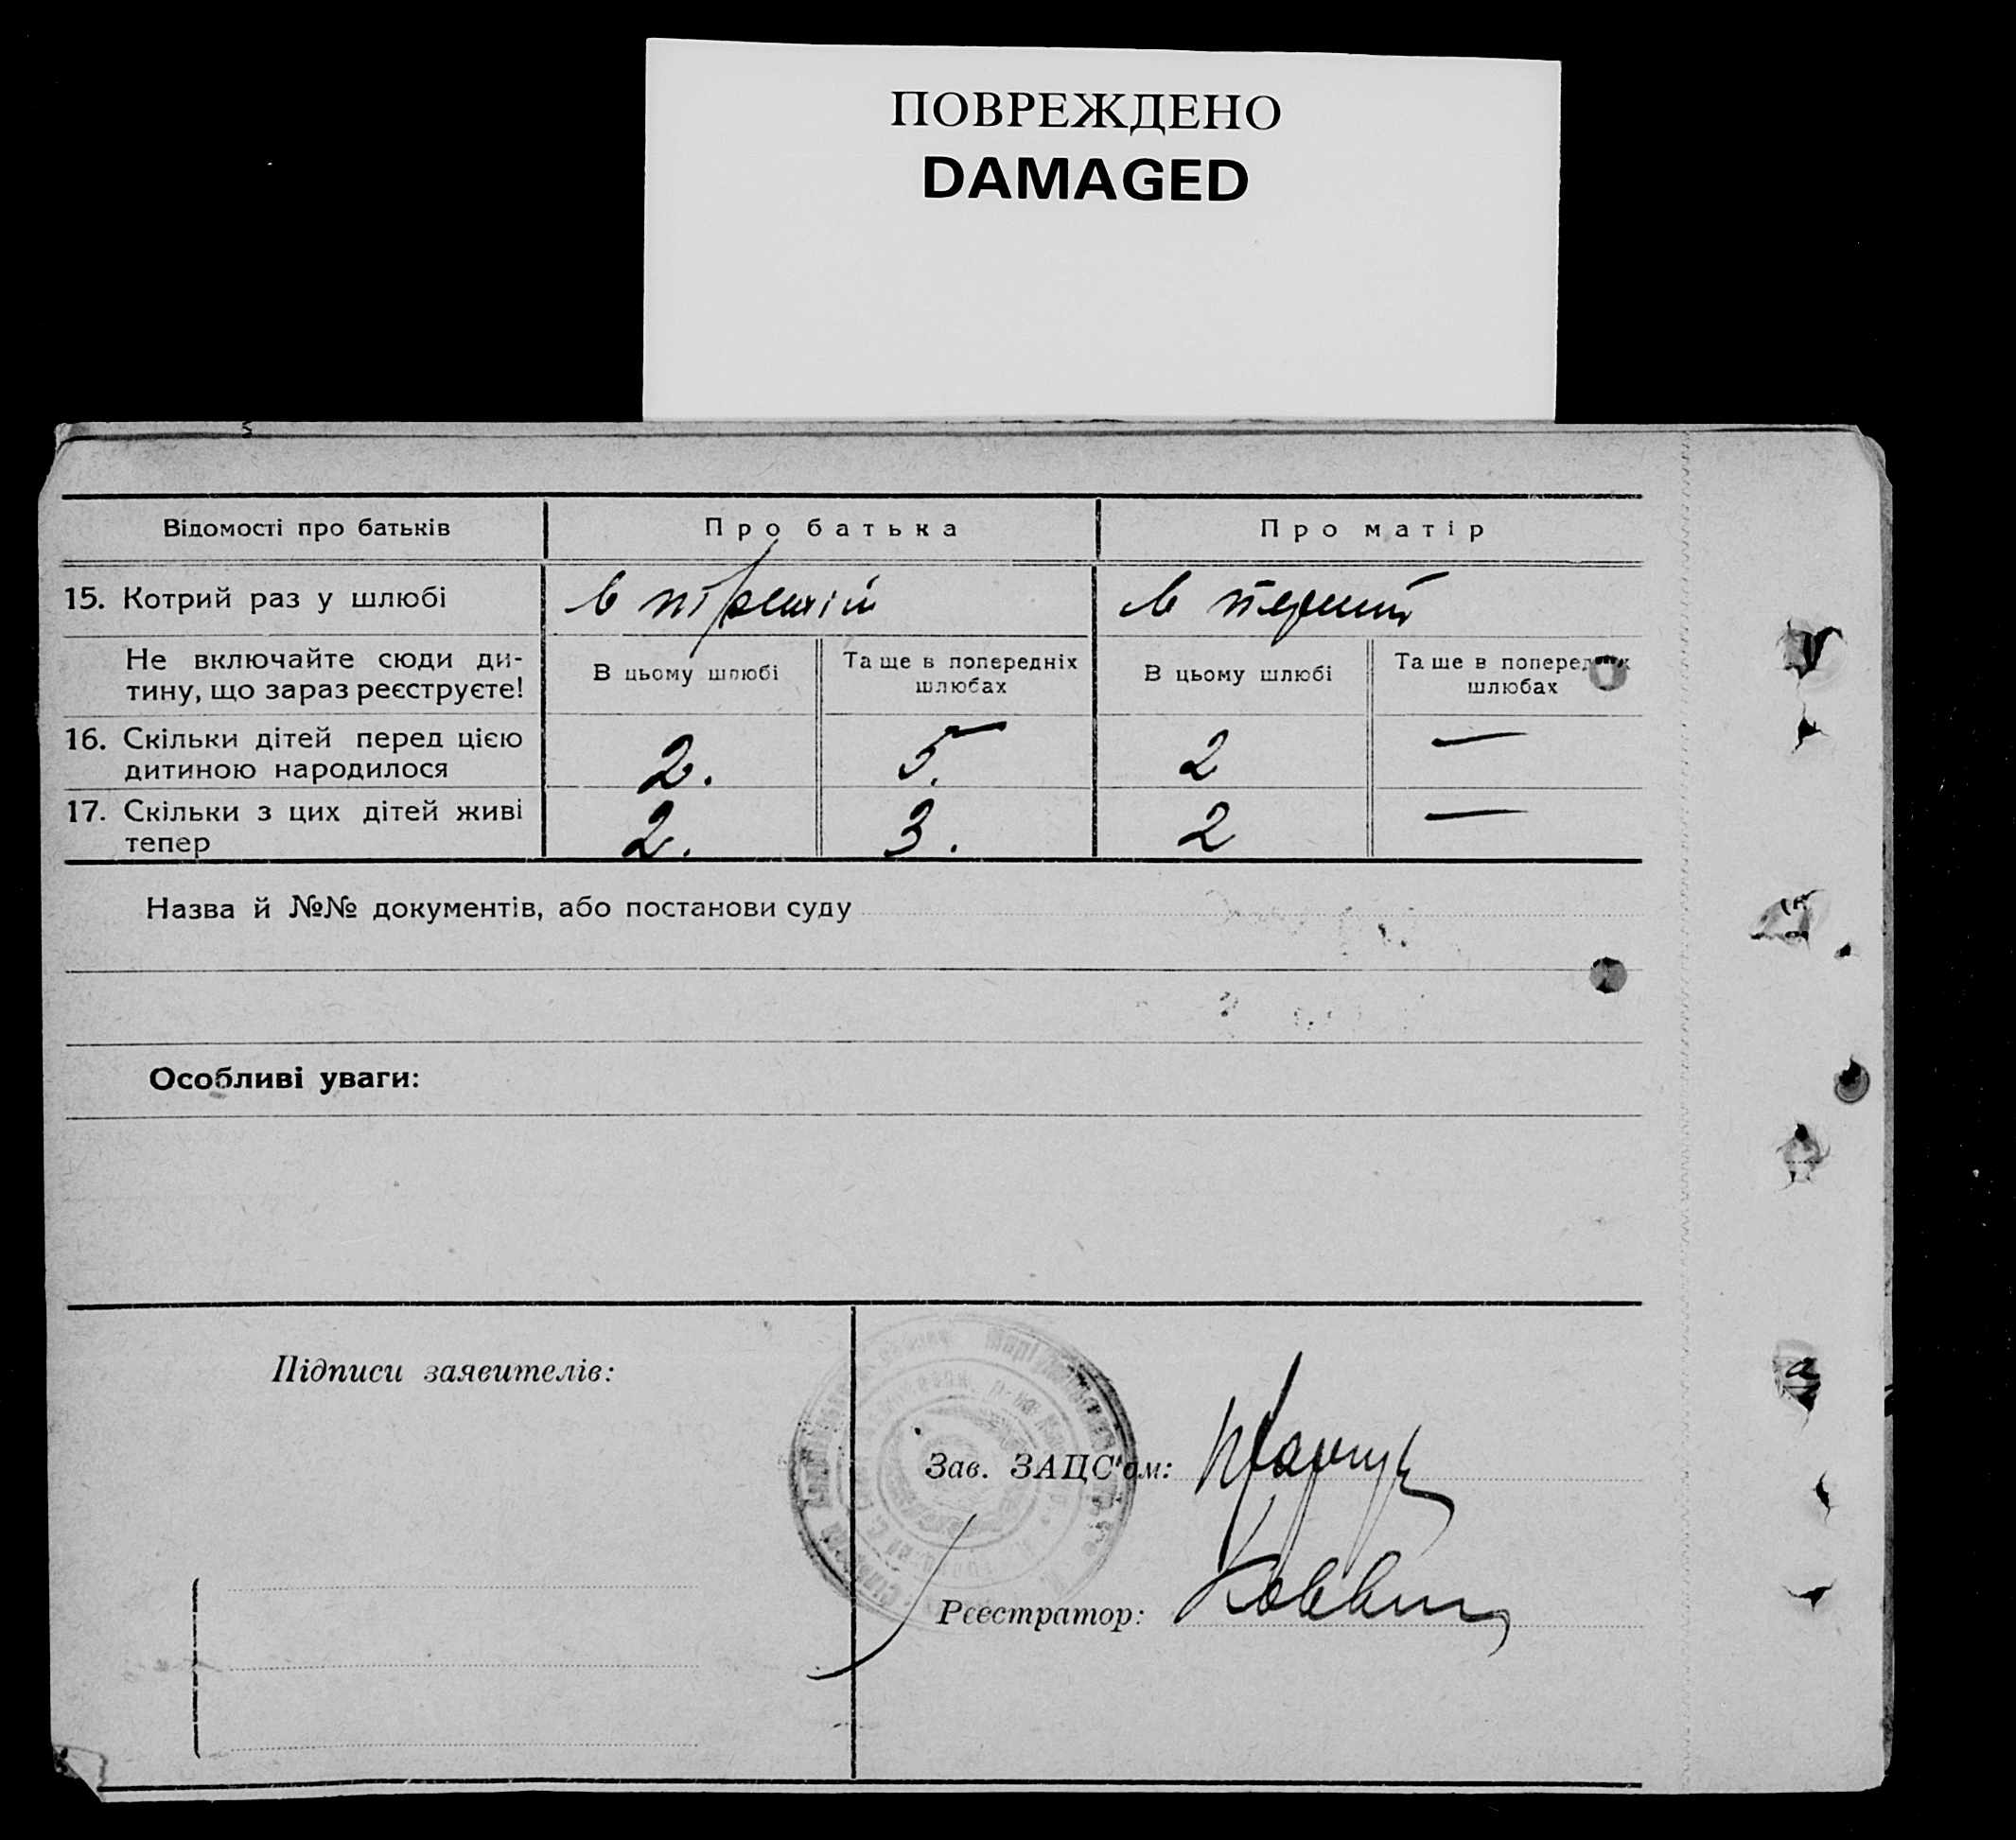 ПОВРЕЖДЕНО
DAMAGED
Відомості про батьків
Про батька
Про матір
15. Котрий раз у шлюбі
в третій
в перший
Не включайте сюди ди-
тину, що зараз реєструєте!
В цьому шлюбі
Та ще в попередніх
шлюбах
В цьому шлюбі
Та ще в попередніх
шлюбах
16. Скільки дітей перед цією
дитиною народилося
2.
5.
2
—
17. Скільки з цих дітей живі
тепер
2.
3.
2
—
Назва й №№ документів, або постанови суду
Особливі уваги:
Підписи заявителів:
Зав. ЗАЦС'ом:
Реєстратор: